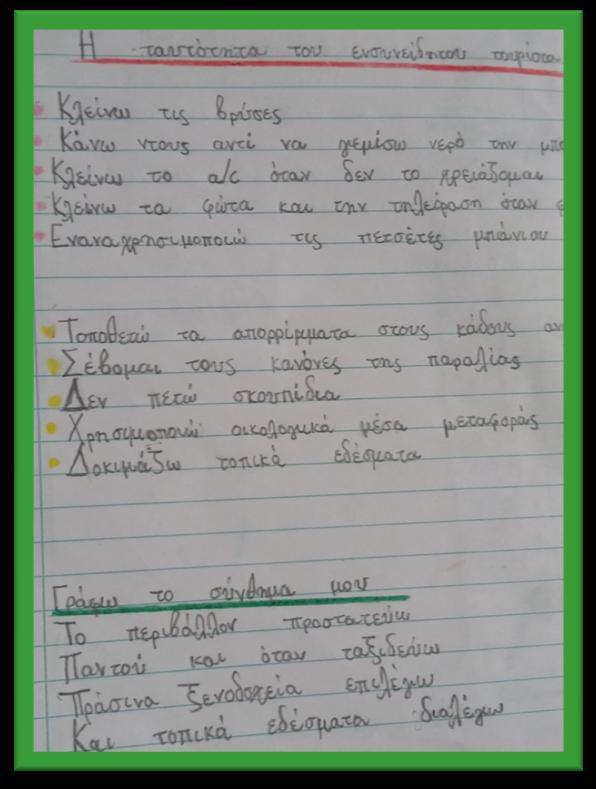 Η ταυτότητα του ενσυνείδητου τουρίστα
Κλείνω τις βρύσες
Κάνω ντους αντί να γεμίσω νερό την μπα
Κλείνω το a/c όταν δεν το χρειάζομαι
Κλείνω τα φώτα και την τηλεόραση όταν φ
Εναναχρησιμοποιώ τις πετσέτες μπάνιου
Τοποθετώ τα απορρίμματα στους κάδους αν
Σέβομαι τους κανόνες της παραλίας
Δεν πετώ σκουπίδια
Χρησιμοποιώ οικολογικά μέσα μεταφοράς
Δοκιμάζω τοπικά εδέσματα
Γράφω το σύνθημα μου
Το περιβάλλον προστατεύω
Παντού και όταν ταξιδεύω
Πράσινα ξενοδοχεία επιλέγω
Και τοπικά εδέσματα διαλέγω